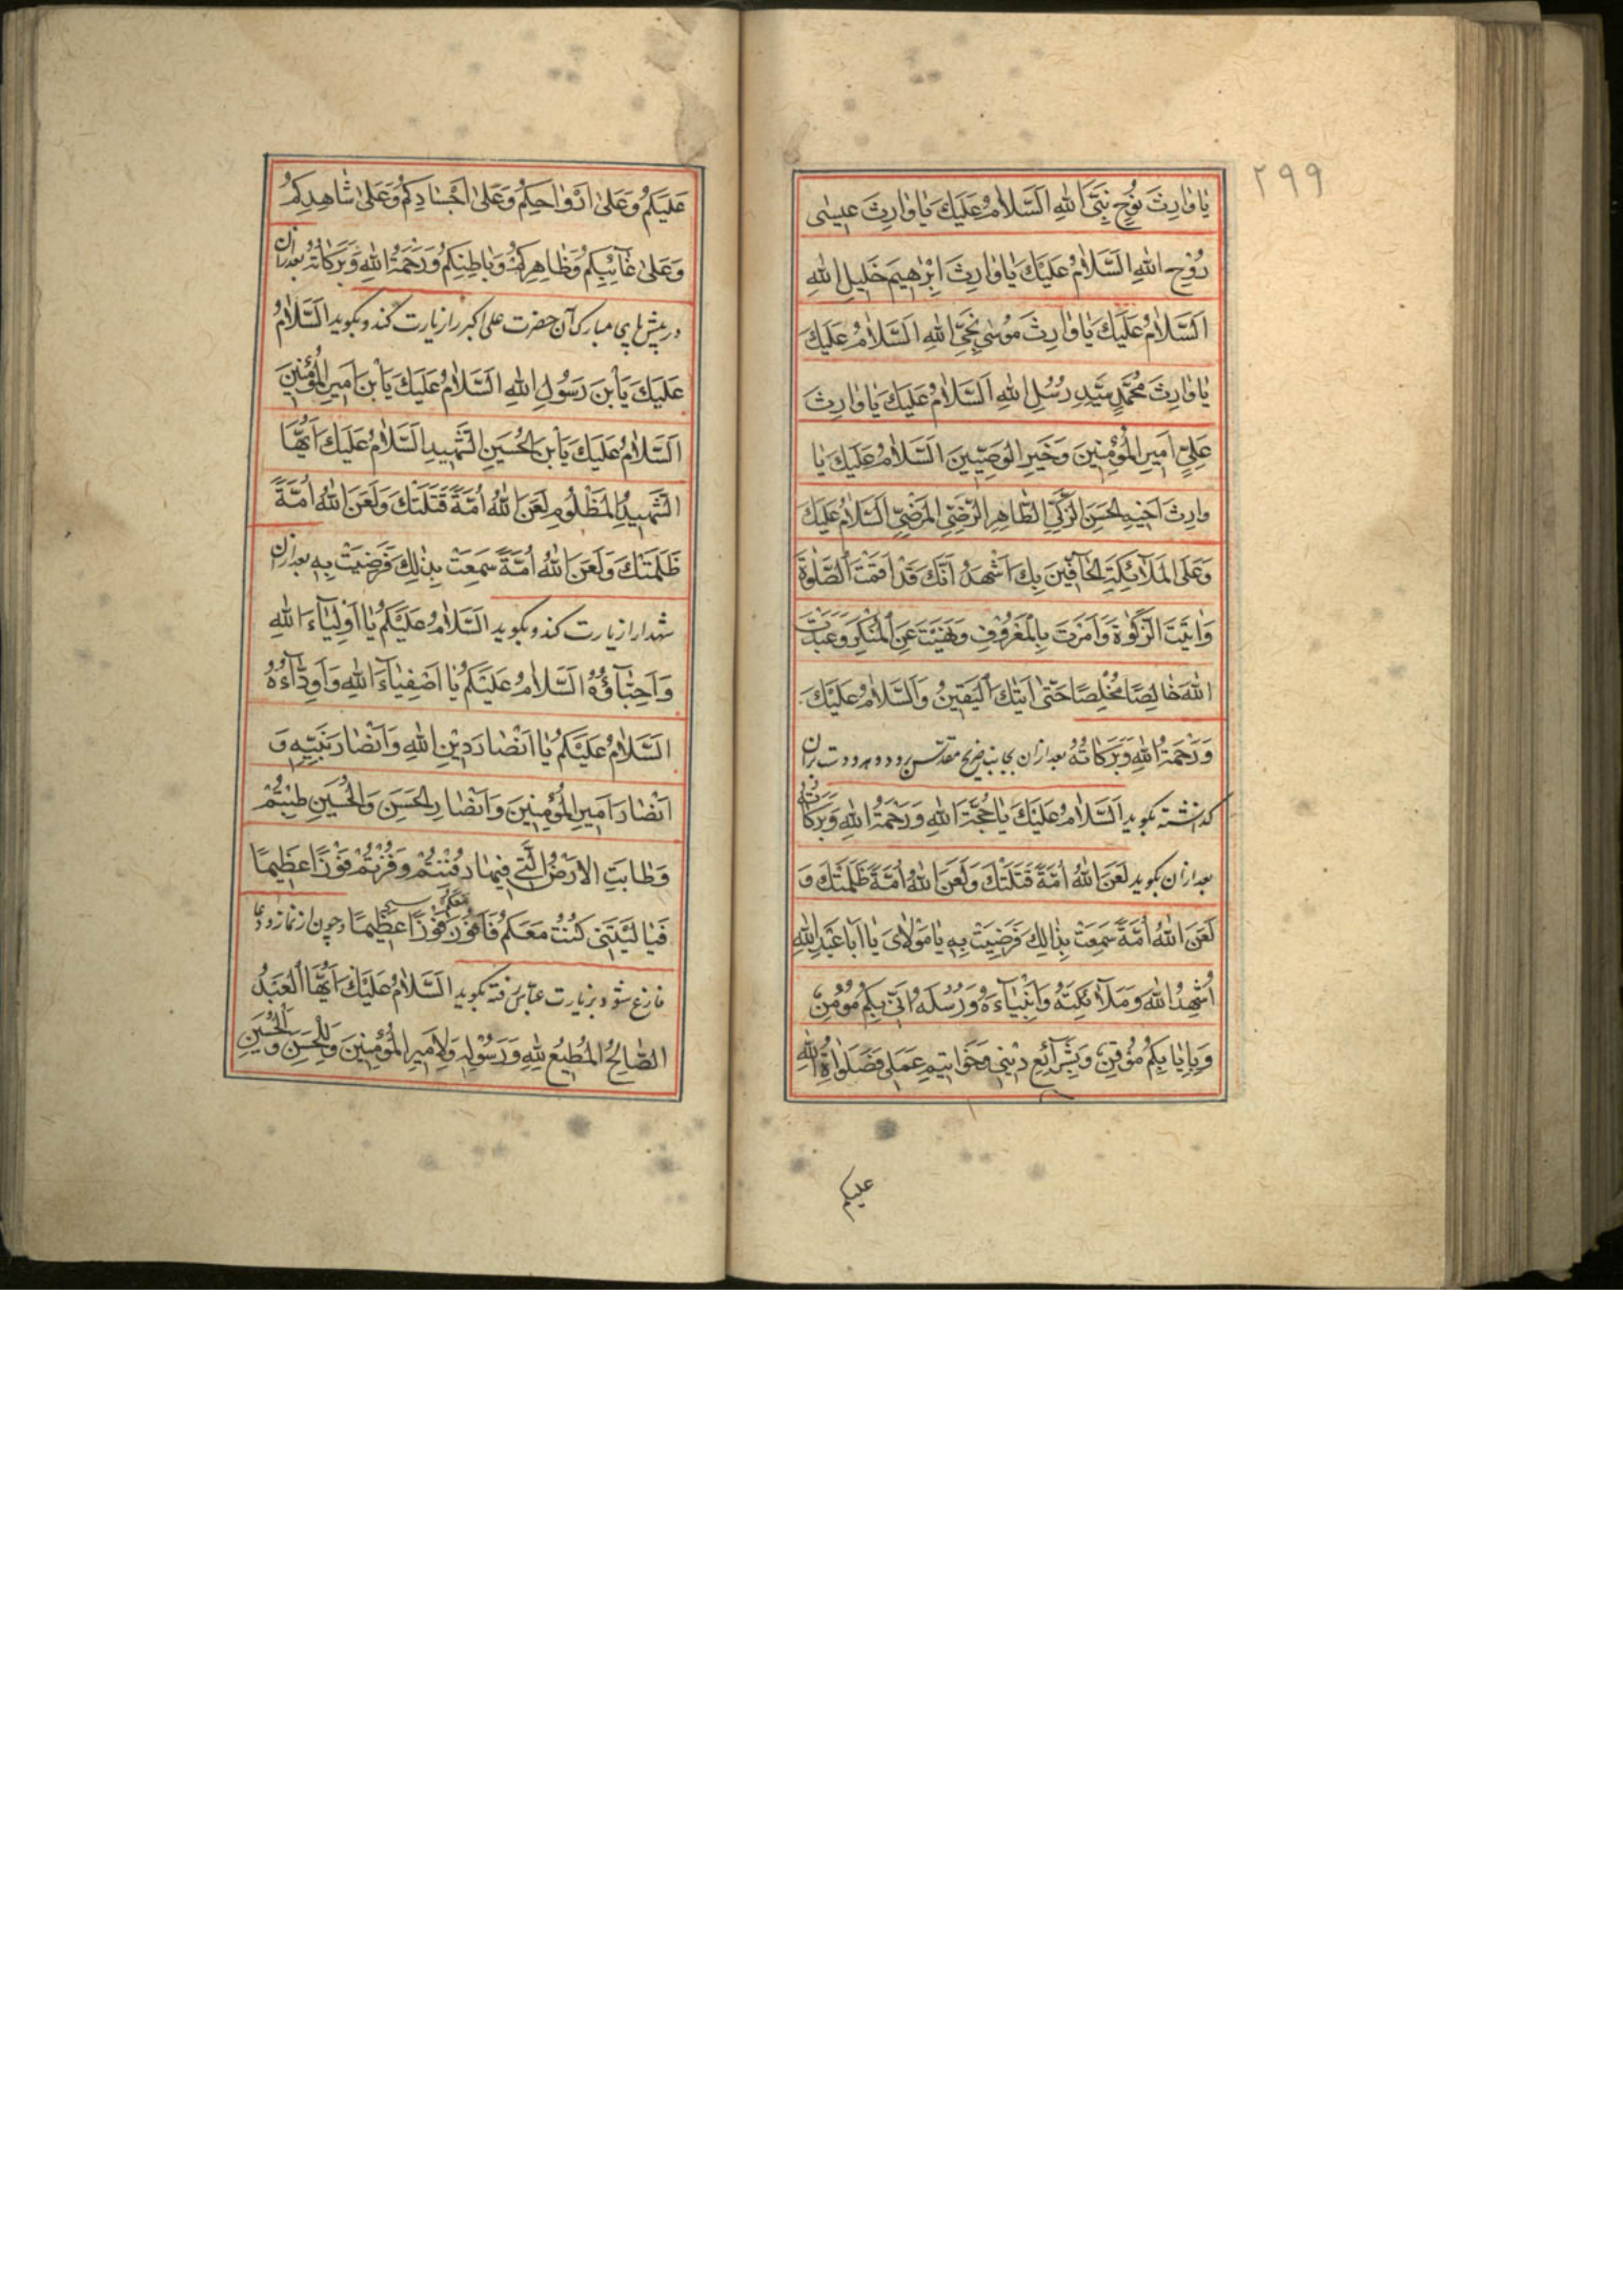 ٢٩٩
يٰا وٰارِثَ نُوحٍ نَبِيِّ اللهِ اَلسَّلاٰمُ عَلَيْكَ يٰا وٰارِثَ عيسٰى
رُوحِ اللهِ اَلسَّلاٰمُ عَلَيْكَ يٰا وٰارِثَ اِبْرٰهيمَ خَليلِ اللهِ
اَلسَّلاٰمُ عَلَيْكَ يٰا وٰارِثَ مُوسٰى نَجِيِّ اللهِ اَلسَّلاٰمُ عَلَيْكَ
يٰا وٰارِثَ مُحَمَّدٍ سَيِّدِ رُسُلِ اللهِ اَلسَّلاٰمُ عَلَيْكَ يٰا وٰارِثَ
عَلِيٍّ اَميرِ الْمُؤْمِنينَ وَخَيْرِ الْوَصِيّينَ اَلسَّلاٰمُ عَلَيْكَ يٰا
وارِثَ اَخيهِ الْحَسَنِ الزَّكِيِّ الطّٰاهِرِ الرَّضِيِّ الْمَرْضِيِّ اَلسَّلاٰمُ عَلَيْكَ
وَعَلَى الْمَلآئِكَةِ الْحٰآفّينَ بِكَ اَشْهَدُ اَنَّكَ قَدْ اَقَمْتَ الصَّلٰوةَ
وَاٰتَيْتَ الزَّكٰوةَ وَاَمَرْتَ بِالْمَعْرُوفِ وَنَهَيْتَ عَنِ الْمُنْكَرِ وَعَبَدْتَ
اللهَ خٰالِصًا مُخْلِصًا حَتّٰى اَتٰيكَ الْيَقينُ وَالسَّلاٰمُ عَلَيْكَ
وَرَحْمَةُ اللهِ وَبَرَكٰاتُهُ بعد ازان بجانب ضريح مقدس رود و هر دو دست بران
كذاشته بكويد اَلسَّلاٰمُ عَلَيْكَ يٰا حُجَّةَ اللهِ وَرَحْمَةُ اللهِ وَبَرَكٰاتُهُ
بعد ازان بكويد لَعَنَ اللهُ اُمَّةً قَتَلَتْكَ وَلَعَنَ اللهُ اُمَّةً ظَلَمَتْكَ وَ
لَعَنَ اللهُ اُمَّةً سَمِعَتْ بِذٰالِكَ فَرَضِيَتْ بِهِ يٰا مَوْلاٰىَ يٰا اَبٰا عَبْدِ اللهِ
اُشْهِدُ اللهَ وَمَلآئِكَتَهُ وَاَنْبِيٰآءَهُ وَرُسُلَهُ اَنّى بِكُمْ مُؤْمِنٌ
وَبِاِيٰابِكُمْ مُؤْقِنٌ وَبِشَرٰآئِعِ دينى وَخَوٰاتيمِ عَمَلى فَصَلَوٰاةُ اللهِ
عليكم
عَلَيْكُمْ وَعَلىٰ اَرْوٰاحِكُمْ وَعَلىٰ اَجْسٰادِكُمْ وَعَلىٰ شٰاهِدِكُمْ
وَعَلىٰ غٰآئِبِكُمْ وَظٰاهِرِكُمْ وَبٰاطِنِكُمْ وَرَحْمَةُ اللهِ وَبَرَكٰاتُهُ بعد ازان
در پيش پاى مبارك آن حضرت على اكبر را زيارت كند و بكويد اَلسَّلاٰمُ
عَلَيْكَ يَا بْنَ رَسُولِ اللهِ اَلسَّلاٰمُ عَلَيْكَ يَا بْنَ اَميرِ الْمُؤْمِنينَ
اَلسَّلاٰمُ عَلَيْكَ يَا بْنَ الْحُسَيْنِ الشَّهيدِ اَلسَّلاٰمُ عَلَيْكَ اَيُّهَا
الشَّهيدُ الْمَظْلُومِ لَعَنَ اللهُ اُمَّةً قَتَلَتْكَ وَلَعَنَ اللهُ اُمَّةً
ظَلَمَتْكَ وَلَعَنَ اللهُ اُمَّةً سَمِعَتْ بِذٰلِكَ فَرَضِيَتْ بِهِ بعد ازان
شهدا را زيارت كند و بكويد اَلسَّلاٰمُ عَلَيْكُمْ يٰا اَوْلِيٰآءَ اللهِ
وَاَحِبّٰآؤُهُ اَلسَّلاٰمُ عَلَيْكُمْ يٰا اَصْفِيٰآءَ اللهِ وَاَوِدّٰآءُهُ
اَلسَّلاٰمُ عَلَيْكُمْ يٰا اَنْصٰارَ دينِ اللهِ وَاَنْصٰارَ نَبِيِّهِ وَ
اَنْصٰارَ اَميرِ الْمُؤْمِنينَ وَاَنْصٰارِ الْحَسَنِ وَالْحُسَيْنِ طِبْتُمْ
وَطٰابَتِ الاَرْضُ الَّتى فيهٰا دُفِنْتُمْ وَفُزْتُمْ فَوْزًا عَظيمًا
فَيٰا لَيْتَنى كُنْتُ مَعَكُمْ فَاَفُوزَ مَعَكُمْ فَوْزًا عَظيمًا و چون از نماز و دعا
فارغ شود بزيارت عباس رفته بكويد اَلسَّلاٰمُ عَلَيْكَ اَيُّهَا الْعَبْدُ
الصّٰالِحُ الْمُطيعُ لِلّهِ وَرَسُولِهِ وَلاَِميرِ الْمُؤْمِنينَ وَلِلْحَسَنِ وَالْحُسَيْنِ